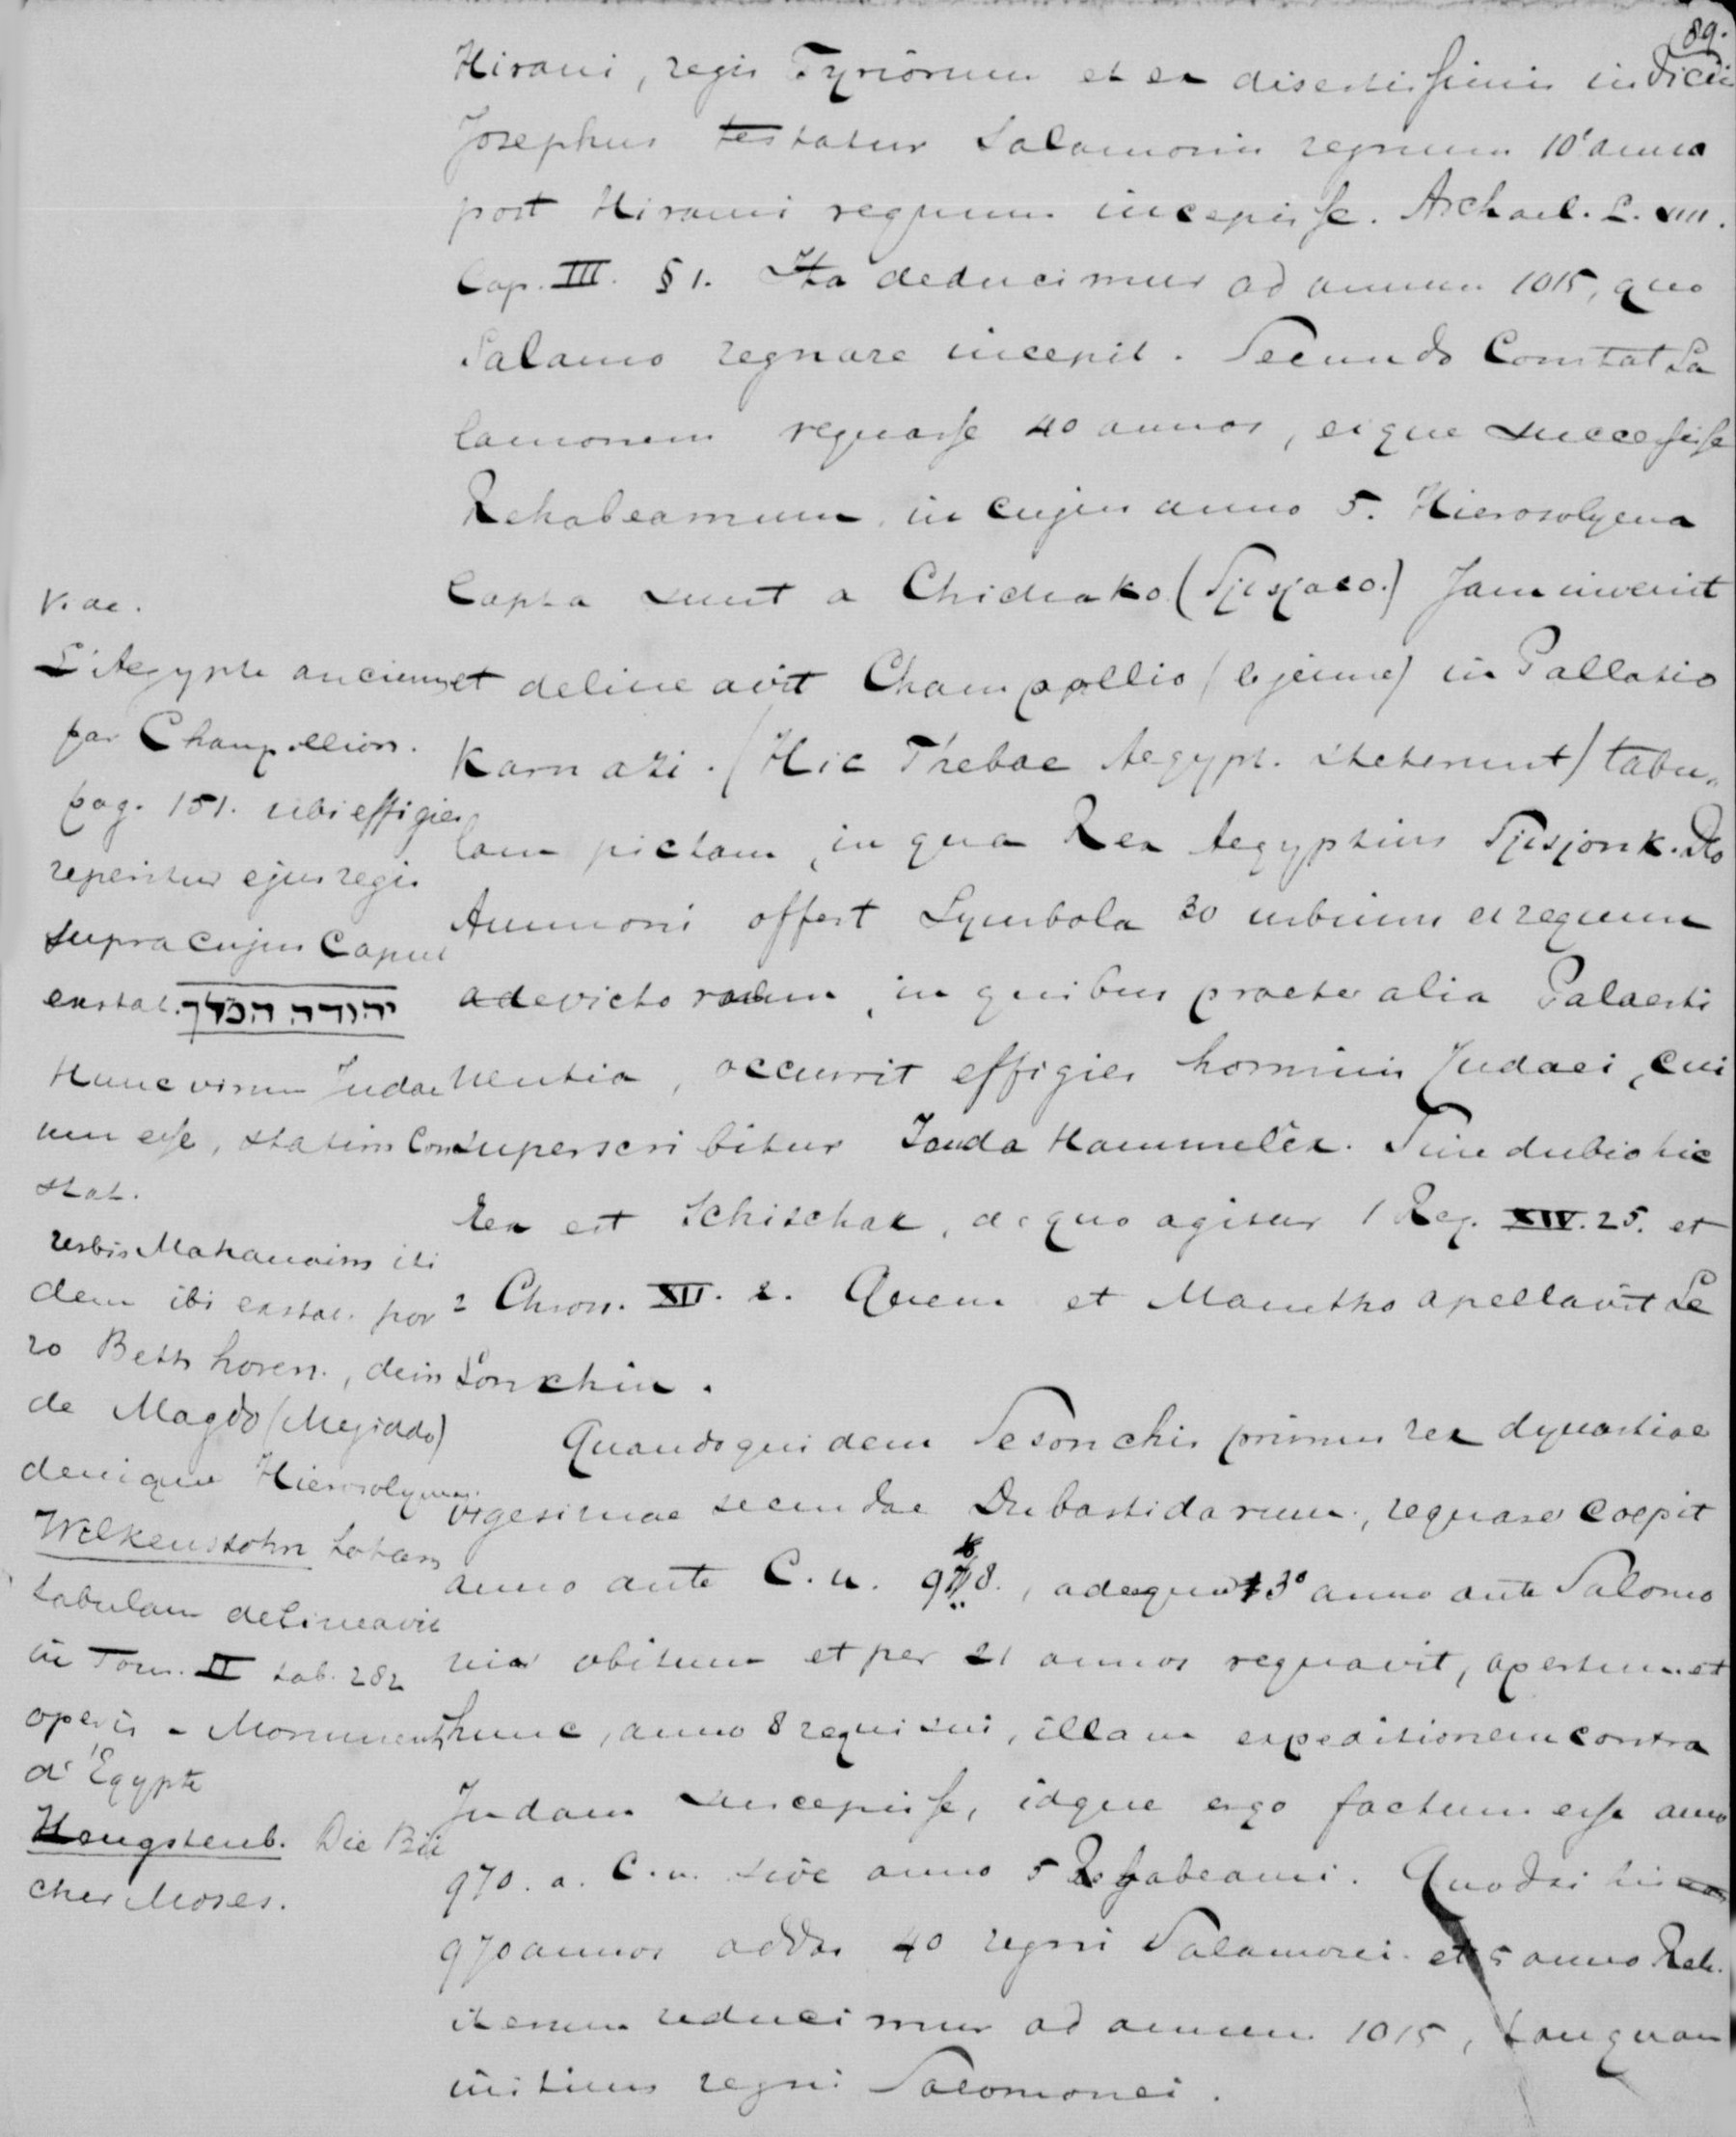 89.
Hirami, regis Tyriorum et ex disertissimis indiciis
Josephus testatur Salamonis regnum 10° anno
post Hirami regnum incepisse. Archael. L. VIII.
Cap. III. § 1. Ita deducimur ad annum 1015, quo
Salamo regnare incepit. Secundo Constat Sa
lamonem regnasse 40 annos, eique successisse
Rehabeamum, in cujus anno 5. Hierosolyma
Capta sunt a (Sjisjaco.) Jam invenit
et delineavit Champollio (le jeune) in Pallatio
Karnazi. (Hic Thebae Aegypt. steterunt) tabu,
lam pictam, in qua Rex Aegyptius Sjisjonk. Do
Ammoni offert Symbola 30 urbium et regum
a devictorum, in quibus praeter alia Palaesti
nentia, occurrit effigies hominis Judaei, cui
superscribitur Jouda Hammelek. Sine dubio hic
Rex est Schischak, de quo agitur 1 Reg. XIV. 25. et
2 Chron. XII. 2. Quem et Manetho apellavit Se
sonchin.
Quandoquidem Sesonchis primus rex dynastiae
vigesimae secundae Bubastidarum, regnare coepit
anno ante C. n. 978., adeoque 3° anno ante Salomo
nis obitum et per 21 annos regnavit, apertum est
hunc, anno 8 regni sui, illam expeditionem contra
Judam suscepisse, idque ergo factum esse anno
970. a. C. n. sive anno 5 Rehabeami. Quodsi his
970 annos addas 40 regni Salamonei et 5 anno Reh.
iterum reducimur ad annum 1015, tanquam
initium regni Salomonei.
Vide.
L'Aegypte ancienne
par Champollion.
pag. 151. ubi effigies
reperitur ejus regis
supra cujus Caput
exstat. יהודה המלך
Hunc virum Judae
um esse, statim Con
stat.
urbis Mahanaim iti
dem ibi exstat. por
ro Beth horen., dein
de Magdo (Megiddo)
denique Hierosolyma.
Wilkensohn totam
tabulam delineavit
in Tom. II tab. 282
operis - Monuments
d'Égypte
Hengstenb. Die Bü
cher Moses.